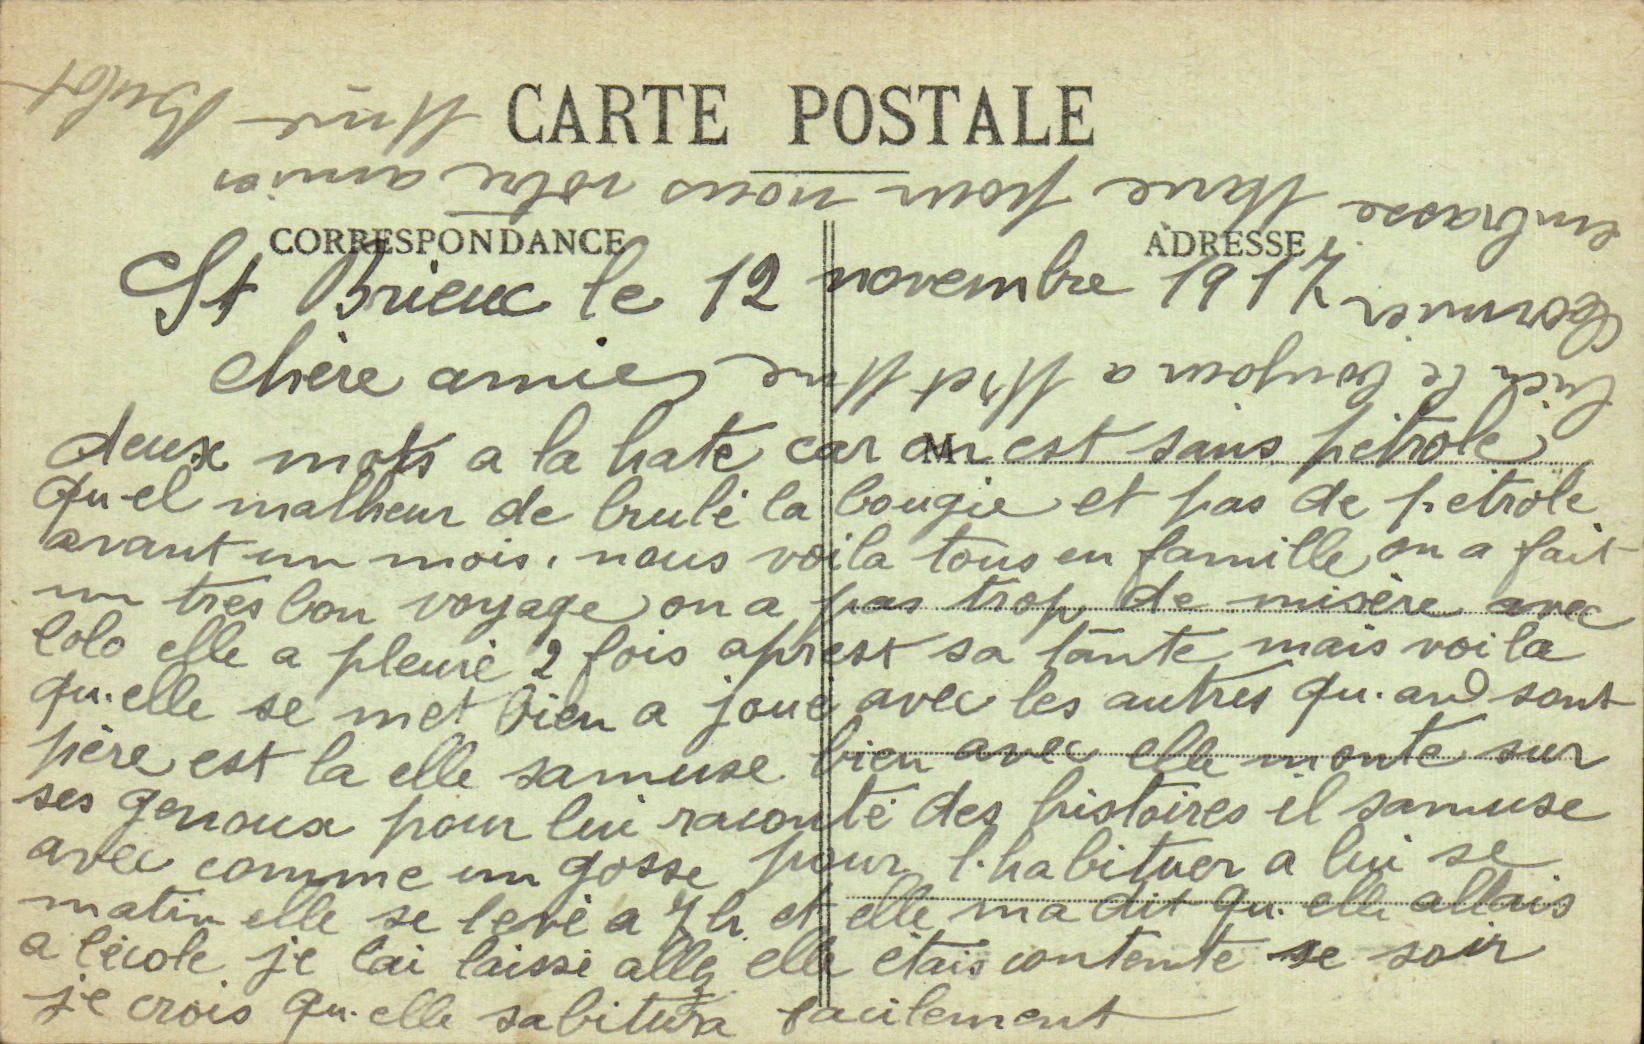 CARTE POSTALE
CORRESPONDANCE
ADRESSE
M
St Brieuc le 12 novembre 1917
chère amie
deux mots a la hate car on est sans pétrole
qu-el malheur de brulé la bougie et pas de petrole
avant un mois. nous voila tous en famille on a fait
un tres bon voyage on a pas trop de misère avec
lolo elle a pleuré 2 fois aprest sa tante mais voila
qu.elle se met bien a joue avec les autres qu.and sont
père est la elle samuse bien avec elle monte sur
ses genoux pour lui raconté des histoires il samuse
avec comme un gosse pour l.habituer a lui se
matin elle se levé a 7 h et elle ma dit qu.elle allais
a lécole je lai laissé allez elle étais contente se soir
je crois qu.elle sabitura facilement
bien le bonjour a Mr et Mme
Cormier
embrasse pour nous votre amier
Bulot